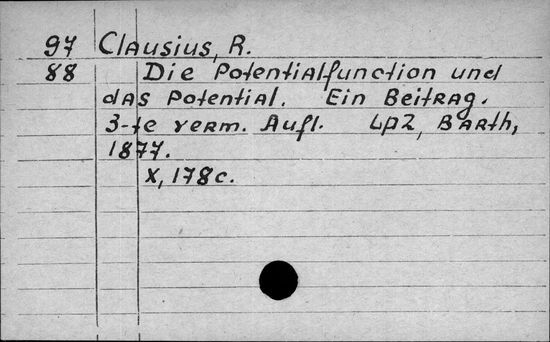 97 Clausius, R.
88 Die Potentialfunction und
das Potential. Ein Beitrag.
3-te verm. Aufl. Lpz, Barth,
1877.
X, 178 c.